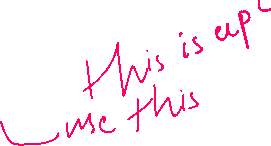 this is
use this